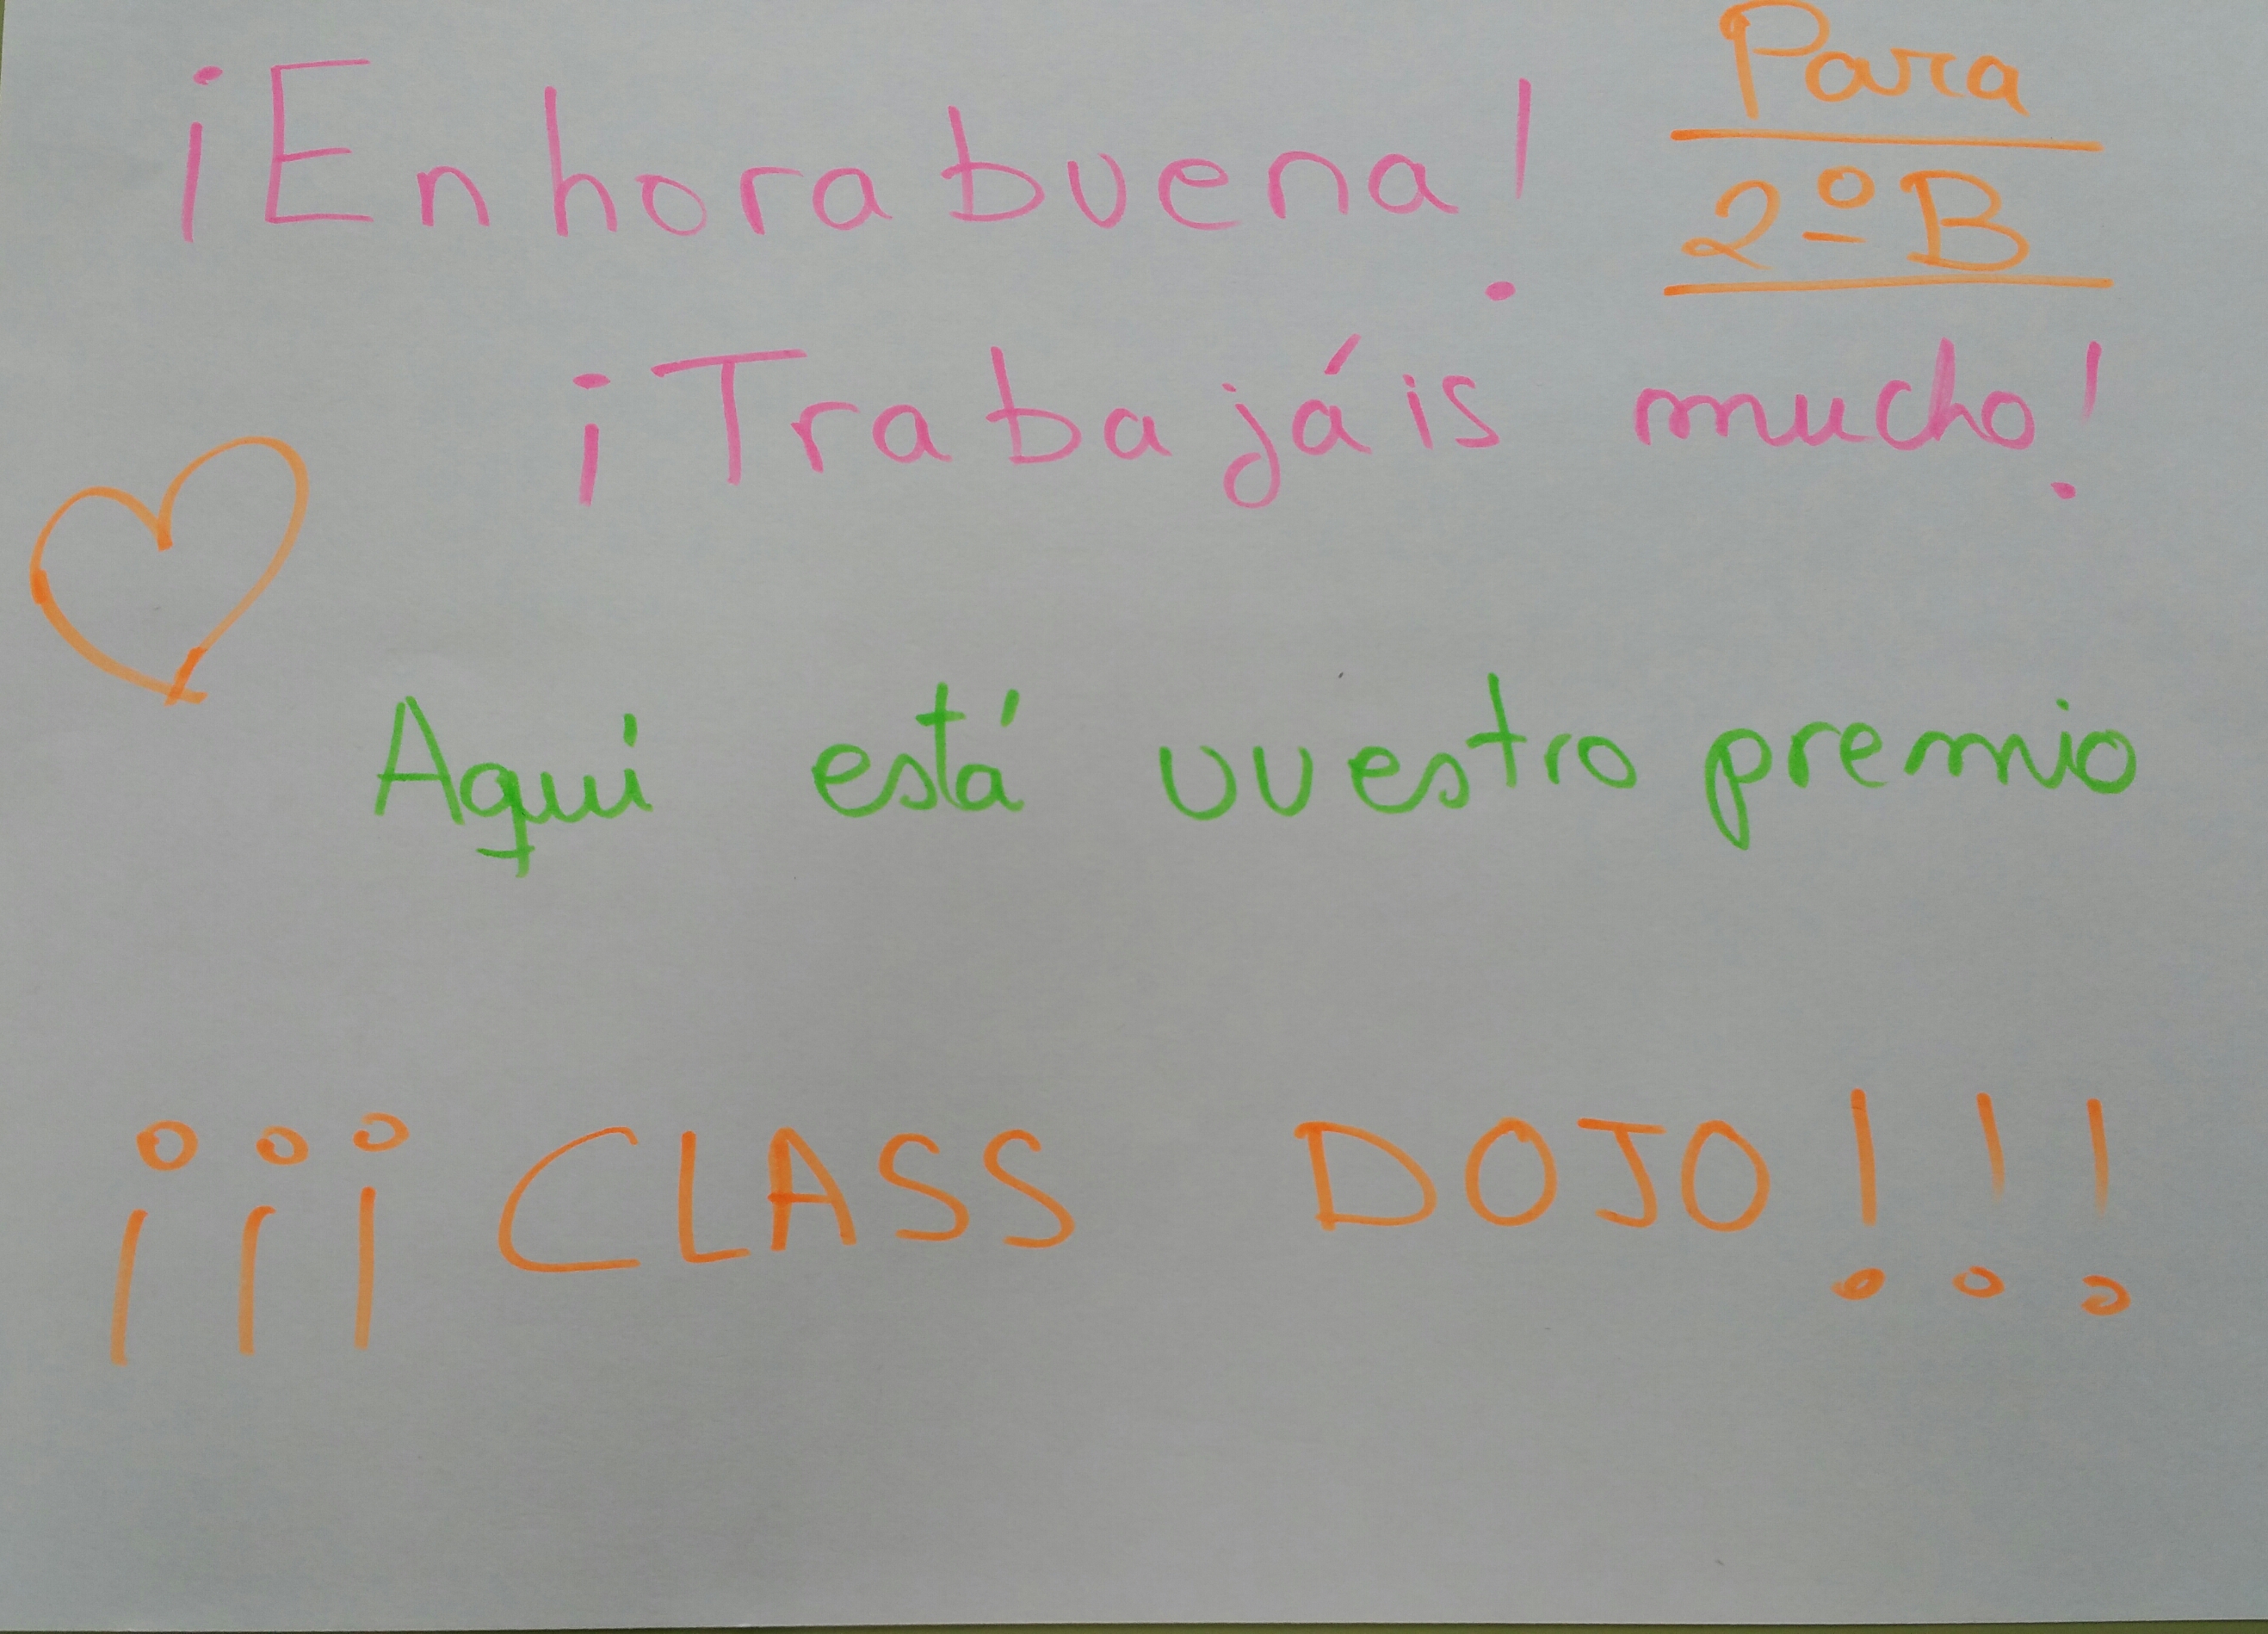 ¡Enhorabuena!
Para
2º B
¡Trabajáis mucho!
Aquí está vuestro premio
¡¡¡CLASS DOJO!!!